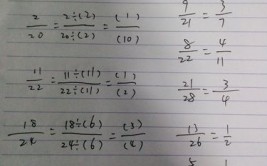 2/20 = 2÷(2)/20÷(2) = (1)/(10)
11/22 = 11÷(11)/22÷(11) = (1)/(2)
18/24 = 18÷(6)/24÷(6) = (3)/(4)
9/21 = 3/7
8/22 = 4/11
21/28 = 3/4
13/26 = 1/2